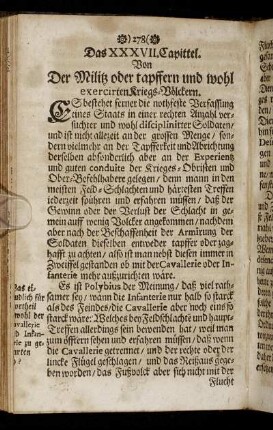 )278(
Das XXXVII. Capittel.
Von
Der Militz oder tapffern und wohl
exercirten Kriegs-Völckern.
ES bestehet ferner die nothfeste Verfassung
eines Staats in einer rechten Anzahl ver-
suchter und wohl disciplinirter Soldaten/
und ist nicht allezeit an der grossen Menge/ son-
dern vielmehr an der Tapfferkeit und Abrichtung
derselben absonderlich aber an der Experientz
und guten conduite der Krieges-Obristen und
Ober-Befehlhabere gelegen/ denn mann in den
meisten Feld-Schlachten und härtesten Treffen
iederzeit spühren und erfahren müssen/ daß der
Gewinn oder der Verlust der Schlacht in ge-
mein auff wenig Volcker angekommen/ nachdem
aber nach der Beschaffenheit der Armirung der
Soldaten dieselben entweder tapffer oder zag-
hafft zu achten/ also ist man nebst diesen immer in
Zweiffel gestanden ob mit der Cavallerie oder In-
fanterie mehr außzurichten wäre.
Es ist Polybius der Meinung/ daß viel rath-
samer sey/ wann die Infanterie nur halb so starck
als des Feindes/ die Cavallerie aber noch eins so
starck wäre: Welches bey Feldschlachte und haupt-
Treffen allerdings sein bewenden hat/ weil man
zum öfftern sehen und erfahren müssen/ daß wenn
die Cavallerie getrennet/ und der rechte oder der
lincke Flügel geschlagen/ und das Reißaus gege-
ben worden/ das Fußvolck aber sich nicht mit der
Flucht